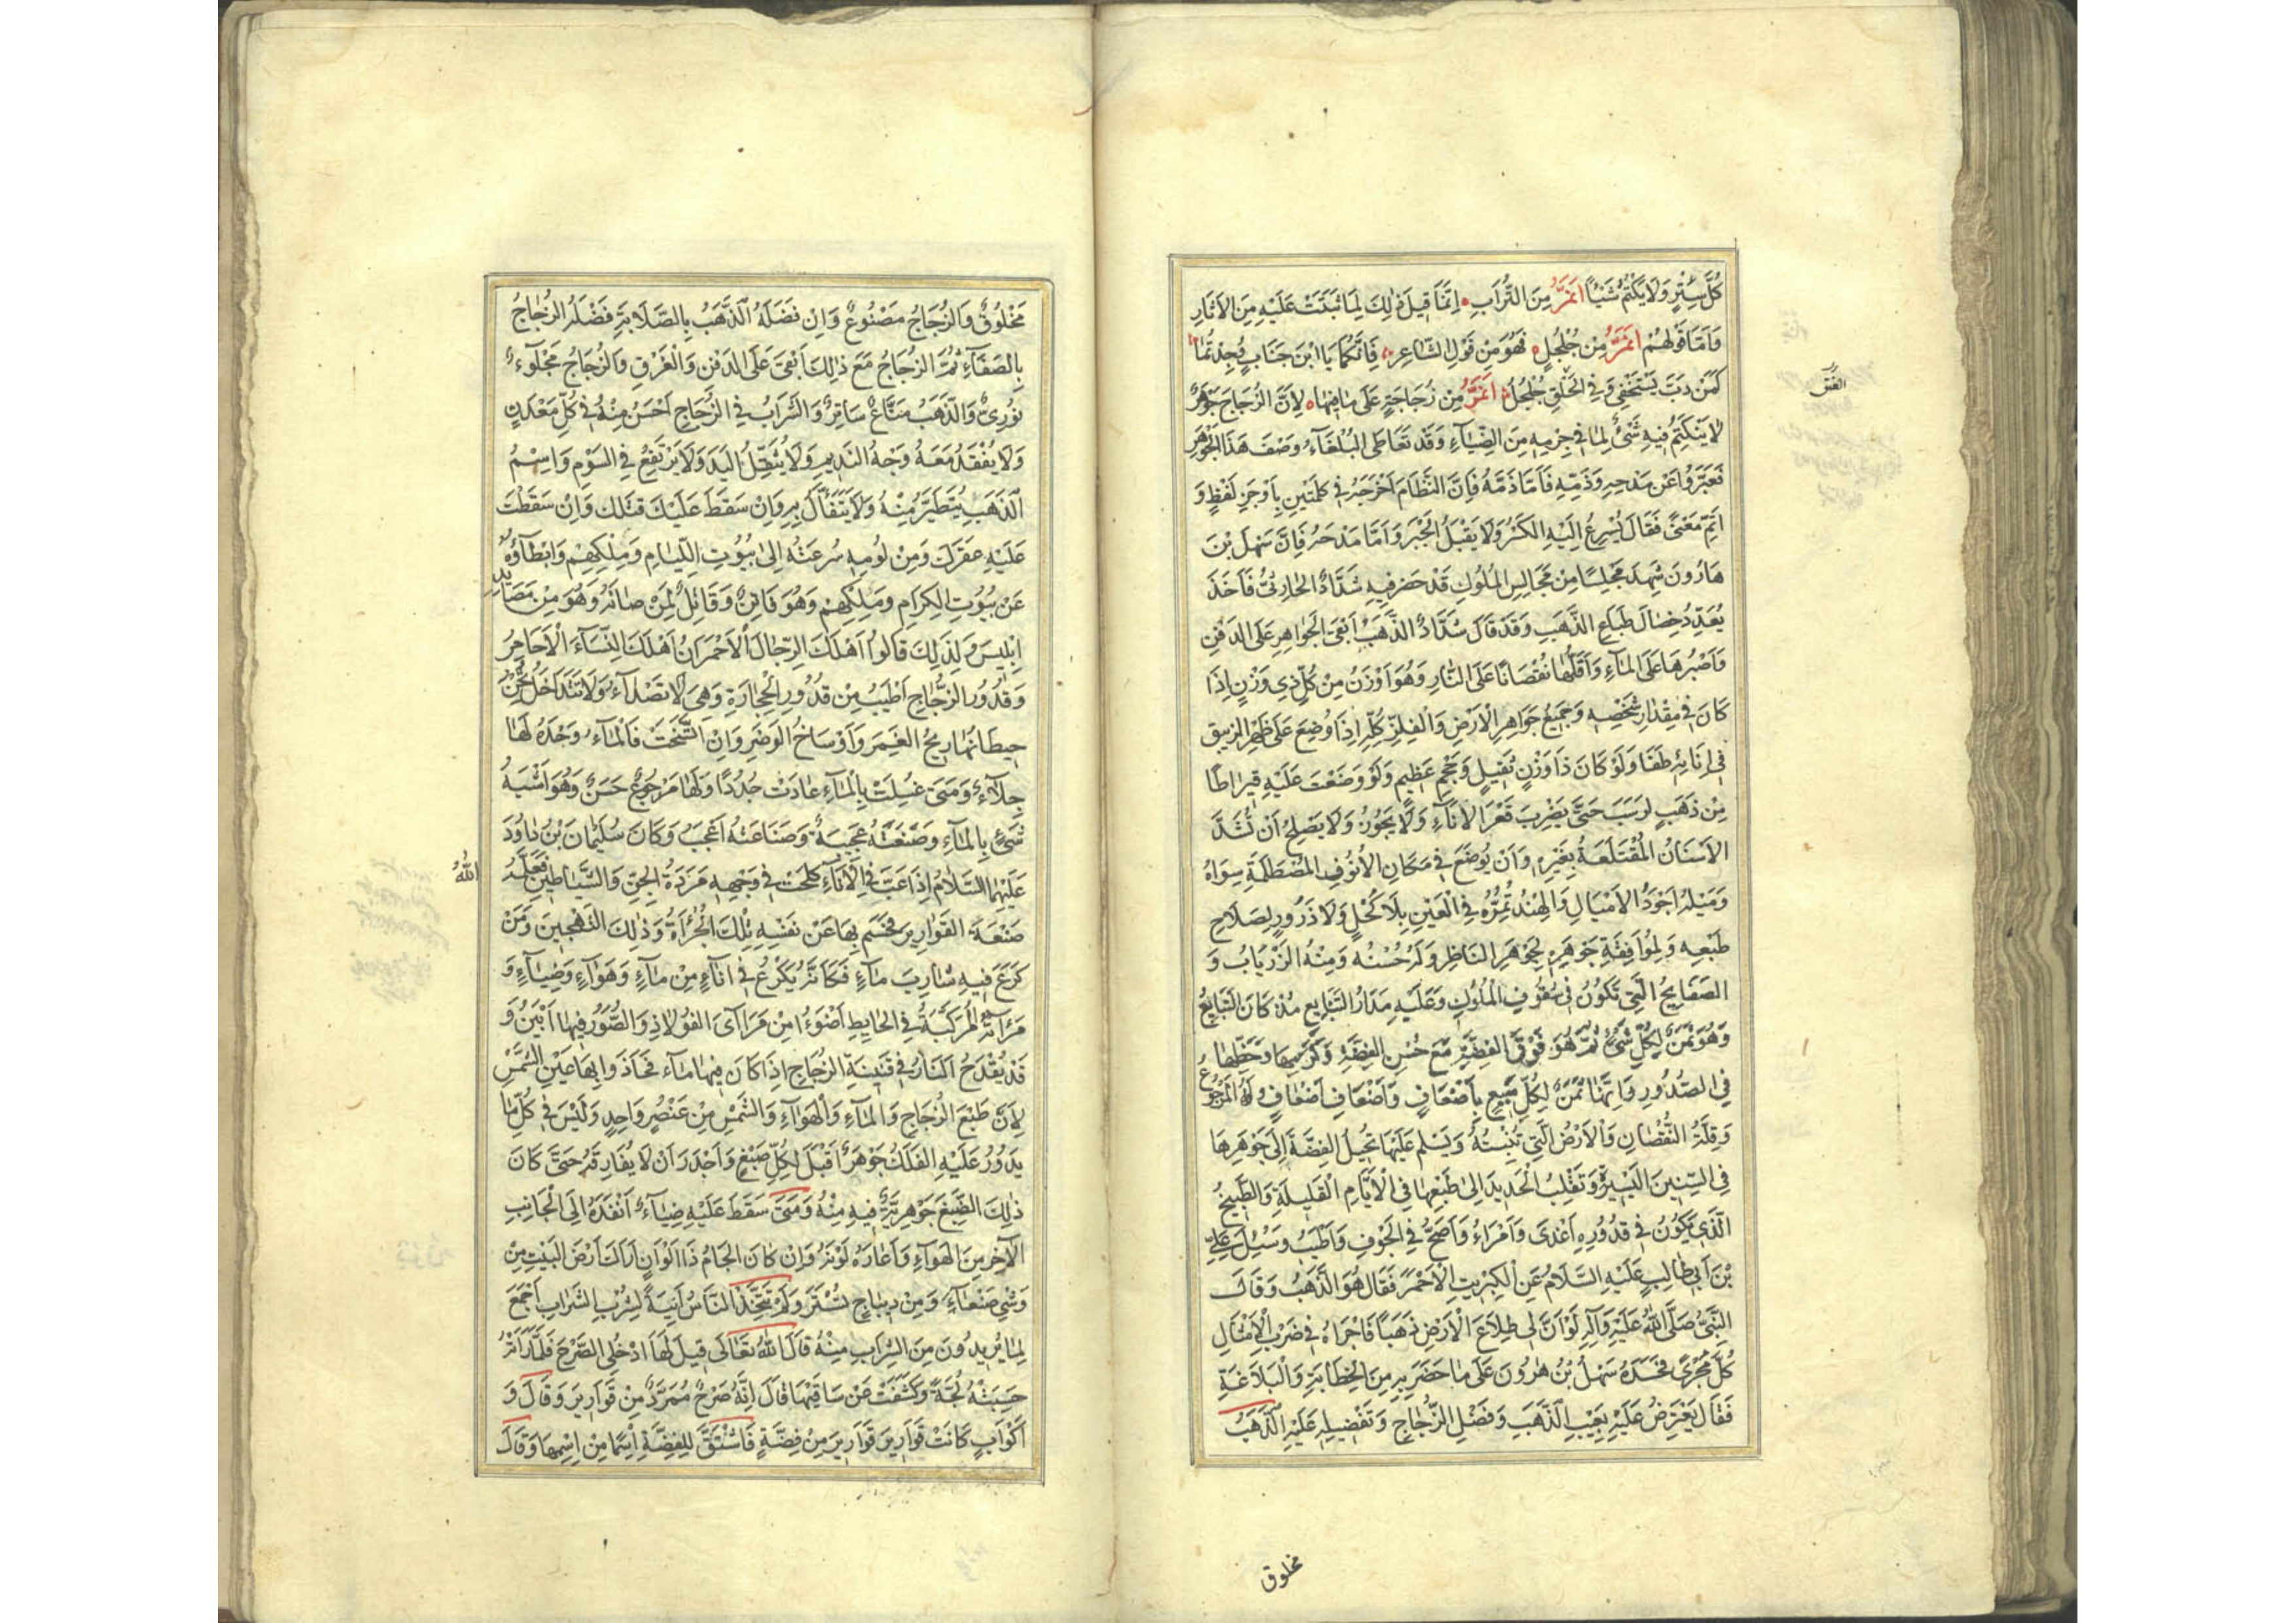 كُلَّ سِتْرٍ وَلَا يَكْتُمُ شَيْئًا اَنَمُّ مِنَ التُّرَابِ اِنَّمَا قِيلَ ذٰلِكَ لِمَا تَثْبُتُ عَلَيْهِ مِنَ الْآثَارِ
وَاَمَّا قَوْلُهُمْ اَنَمُّ مِنْ جُلْجُلٍ فَهُوَ مِنْ قَوْلِ الشَّاعِرِ فَاِنَّكُمَا يَا ابْنَ جَنَابٍ وُجِدْتُمَا
كَمَنْ دَبَّ يَسْتَخْفِي وَفِي الْحَلْقِ جُلْجُلُ اَنَمُّ مِنْ زُجَاجَةٍ عَلَى مَا فِيهَا لِاَنَّ الزُّجَاجَ جَوْهَرٌ
لَا يَنْكَتِمُ فِيهِ شَيْءٌ لِمَا فِي جِرْمِهِ مِنَ الضِّيَاءِ وَقَدْ تَعَاطَى الْبُلَغَاءُ وَصْفَ هَذَا الْجَوْهَرِ
فَعَبَّرُوا عَنْ مَدْحِهِ وَذَمِّهِ فَاَمَّا ذَمُّهُ فَاِنَّ النَّظَّامَ اَخْرَجَهُ فِي كَلِمَتَيْنِ بِاَوْجَزِ لَفْظٍ وَ
اَتَمِّ مَعْنًى فَقَالَ يُسْرِعُ اِلَيْهِ الْكَسْرُ وَلَا يَقْبَلُ الْجَبْرَ وَاَمَّا مَدْحُهُ فَاِنَّ سَهْلَ بْنَ
هَارُونَ شَهِدَ مَجْلِسًا مِنْ مَجَالِسِ الْمُلُوكِ قَدْ حَضَرَ فِيهِ شَدَّادٌ الْحَارِثِيُّ فَاَخَذَ
يُعَدِّدُ خِصَالَ طِبَاعِ الذَّهَبِ وَقَدْ قَالَ شَدَّادٌ الذَّهَبُ اَبْقَى الْجَوَاهِرِ عَلَى الدَّفْنِ
وَاَصْبَرُهَا عَلَى الْمَاءِ وَاَقَلُّهَا نُقْصَانًا عَلَى النَّارِ وَهُوَ اَوْزَنُ مِنْ كُلِّ ذِي وَزْنٍ اِذَا
كَانَ فِي مِقْدَارِ شَخْصِهِ وَجَمِيعُ جَوَاهِرِ الْاَرْضِ وَالْفِلِزِّ كُلِّهِ اِذَا وُضِعَ عَلَى ظَهْرِ الزِّيبَقِ
فِي اِنَائِهِ طَفَا وَلَوْ كَانَ ذَا وَزْنٍ ثَقِيلٍ وَحَجْمٍ عَظِيمٍ وَلَوْ وَضَعْتَ عَلَيْهِ قِيرَاطًا
مِنْ ذَهَبٍ لَرَسَبَ حَتَّى يَضْرِبَ قَعْرَ الْاِنَاءِ وَلَا يَجُوزُ وَلَا يَصْلُحُ اَنْ تُشَدَّ
الْاَسْنَانُ الْمُقْتَلَعَةُ بِغَيْرِهِ وَاَنْ يُوضَعَ فِي مَكَانِ الْاُنُوفِ الْمُصْطَلَمَةِ سِوَاهُ
وَمَيْلُهُ اَجْوَدُ الْاَمْيَالِ وَالْهِنْدُ تُمِرُّهُ فِي الْعَيْنِ بِلَا كُحْلٍ وَلَا ذَرُورٍ لِصَلَاحِ
طَبْعِهِ وَلِمُوَافَقَةِ جَوْهَرِهِ لِجَوْهَرِ النَّاظِرِ وَلَهُ حُسْنُهُ وَمِنْهُ الزِّرْيَابُ وَ
الصَّفَايِحُ الَّتِي تَكُونُ فِي سُقُوفِ الْمُلُوكِ وَعَلَيْهِ مَدَارُ التَّبَايُعِ مُذْ كَانَ التَّبَايُعُ
وَهُوَ ثَمَنٌ لِكُلِّ شَيْءٍ ثُمَّ هُوَ فَوْقَ الْفِضَّةِ مَعَ حُسْنِ الْفِضَّةِ وَكَرَمِهَا وَحَظِّهَا
فِي الصُّدُورِ وَاِنَّهَا ثَمَنٌ لِكُلِّ مَبِيعٍ بِاَضْعَافٍ وَاَضْعَافِ اَضْعَافٍ وَلَهُ الْمَرْجُوعُ
وَقِلَّةُ النُّقْصَانِ وَالْاَرْضُ الَّتِي تُنْبِتُهُ وَيَسْلَمُ عَلَيْهَا تُحِيلُ الْفِضَّةَ اِلَى جَوْهَرِهَا
فِي السِّنِينَ الْيَسِيرَةِ وَتَقْلِبُ الْحَدِيدَ اِلٰى طَبْعِهَا فِي الْاَيَّامِ الْقَلِيلَةِ وَالطَّبِيخُ
الَّذِي يَكُونُ فِي قُدُورِهِ اَغْذَى وَاَمْرَاءُ وَاَصَحُّ فِي الْجَوْفِ وَاَطْيَبُ وَسُئِلَ عَلِيُّ
بْنُ اَبِي طَالِبٍ عَلَيْهِ السَّلَامُ عَنِ الْكِبْرِيتِ الْاَحْمَرِ فَقَالَ هُوَ الذَّهَبُ وَقَالَ
النَّبِيُّ صَلَّى اللهُ عَلَيْهِ وَآلِهِ لَوْ اَنَّ لِي طِلَاعَ الْاَرْضِ ذَهَبًا فَاَجْرَاهُ فِي ضَرْبِ الْاَمْثَالِ
كُلَّ مُجْرًى فَحَسَدَهُ سَهْلُ بْنُ هٰرُونَ عَلَى مَا حَضَرَ بِهِ مِنَ الْخَطَابَةِ وَالْبَلَاغَةِ
فَقَالَ يَعْتَرِضُ عَلَيْهِ بِعَيْبِ الذَّهَبِ وَفَضْلِ الزُّجَاجِ وَتَفْضِيلِهِ عَلَيْهِ الذَّهَبُ
مخلوق
مَخْلُوقٌ وَالزُّجَاجُ مَصْنُوعٌ وَاِنْ فَضَلَهُ الذَّهَبُ بِالصَّلَابَةِ فَضَلَهُ الزُّجَاجُ
بِالصَّفَاءِ ثُمَّ الزُّجَاجُ مَعَ ذٰلِكَ اَبْقَى عَلَى الدَّفْنِ وَالْغَرَقِ وَالزُّجَاجُ مَجْلُوءٌ
نُورِيٌّ وَالذَّهَبُ مَتَاعٌ سَاتِرٌ وَالشَّرَابُ فِي الزُّجَاجِ اَحْسَنُ مِنْهُ فِي كُلِّ مَعْدِنٍ
وَلَا يُفْقَدُ مَعَهُ وَجْهُ النَّدِيمِ وَلَا يُثَقِّلُ الْيَدَ وَلَا يَرْتَفِعُ فِي السَّوْمِ وَاسْمُ
الذَّهَبِ يُتَطَيَّرُ مِنْهُ وَلَا يُتَفَاَّلُ بِهِ وَاِنْ سَقَطَ عَلَيْكَ قَتَلَكَ وَاِنْ سَقَطْتَ
عَلَيْهِ عَقَرَكَ وَمِنْ لُومِهِ سُرْعَتُهُ اِلٰى بُيُوتِ اللِّيَامِ وَمِلْكِهِمْ وَاِبْطَاؤُهُ
عَنْ بُيُوتِ الْكِرَامِ وَمِلْكِهِمْ وَهُوَ فَاتِنٌ وَقَاتِلٌ لِمَنْ صَانَهُ وَهُوَ مِنْ مَصَايِدِ
اِبْلِيسَ وَلِذٰلِكَ قَالُوا اَهْلَكَ الرِّجَالَ الْاَحْمَرَانِ اَهْلَكَ النِّسَاءَ الْاَحَامِرُ
وَقُدُورُ الزُّجَاجِ اَطْيَبُ مِنْ قُدُورِ الْحِجَارَةِ وَهِيَ لَا تَصْدَاءُ وَلَا تَتَدَاخَلُ تَحْتَ
حِيطَانِهَا رِيحُ الْغَمَرِ وَاَوْسَاخُ الْوَضَرِ وَاِنِ اتَّسَخَتْ فَالْمَاءُ وَحْدَهُ لَهَا
جِلَاءٌ وَمَتَى غُسِلَتْ بِالْمَاءِ عَادَتْ جُدُدًا وَلَهَا مَرْجُوعٌ حَسَنٌ وَهُوَ اَشْبَهُ
شَيْءٍ بِالْمَاءِ وَصَنْعَتُهُ عَجِيبَةٌ وَصِنَاعَتُهُ اَعْجَبُ وَكَانَ سُلَيْمَانُ بْنُ دَاوُدَ
عَلَيْهِمَا السَّلَامُ اِذَا عَبَّ فِي الْاِنَاءِ كَلَحَتْ فِي وَجْهِهِ مَرَدَةُ الْجِنِّ وَالشَّيَاطِينِ فَعَلَّمَهُ
اللهُ
صَنْعَةَ الْقَوَارِيرِ فَحَسَمَ بِهَا عَنْ نَفْسِهِ تِلْكَ الْجُرْاَةَ وَذٰلِكَ التَّهْجِينَ وَمَنْ
كَرَعَ فِيهِ شَارِبَ مَاءٍ فَكَاَنَّهُ يَكْرَعُ فِي اِنَاءٍ مِنْ مَاءٍ وَهَوَاءٍ وَضِيَاءٍ وَ
مِرْآتُهُ الْمُرَكَّبَةُ فِي الْحَايِطِ اَضْوَءُ مِنْ مَرَاٰى الْفُولَاذِ وَالصُّوَرُ فِيهَا اَبْيَنُ وَ
قَدْ يُقْدَحُ النَّارُ فِي قِنِّينَةِ الزُّجَاجِ اِذَا كَانَ فِيهَا مَاءٌ فَحَاذَوا بِهَا عَيْنَ الشَّمْسِ
لِاَنَّ طَبْعَ الزُّجَاجِ وَالْمَاءِ وَالْهَوَاءِ وَالشَّمْسِ مِنْ عُنْصُرٍ وَاحِدٍ وَلَيْسَ فِي كُلِّ مَا
يَدُورُ عَلَيْهِ الْفَلَكُ جَوْهَرٌ اَقْبَلَ لِكُلِّ صِبْغٍ وَاَجْدَرَ اَنْ لَا يُفَارِقَهُ حَتَّى كَانَ
ذٰلِكَ الصِّبْغَ جَوْهَرِيَّةٌ فِيهِ مِنْهُ وَمَتَى سَقَطَ عَلَيْهِ ضِيَاءٌ اَنْفَذَهُ اِلَى الْجَانِبِ
الْآخَرِ مِنَ الْهَوَاءِ وَاَعَارَهُ لَوْنَهُ وَاِنْ كَانَ الْجَامُ ذَا اَلْوَانٍ اَرَاكَ اَرْضَ الْبَيْتِ مِنْ
وَشْيِ صَنْعَاءَ وَمِنْ دِيبَاجِ تُسْتَرَ وَلَمْ يَتَّخِذِ النَّاسُ اٰنِيَةً لِشُرْبِ الشَّرَابِ اَجْمَعَ
لِمَا يُرِيدُونَ مِنَ الشَّرَابِ مِنْهُ قَالَ اللهُ تَعَالَى قِيلَ لَهَا ادْخُلِي الصَّرْحَ فَلَمَّا رَاَتْهُ
حَسِبَتْهُ لُجَّةً وَكَشَفَتْ عَنْ سَاقَيْهَا قَالَ اِنَّهُ صَرْحٌ مُمَرَّدٌ مِنْ قَوَارِيرَ وَقَالَ وَ
اَكْوَابٍ كَانَتْ قَوَارِيرَ قَوَارِيرَ مِنْ فِضَّةٍ فَاشْتَقَّ لِلْفِضَّةِ اِسْمًا مِنْ اِسْمِهَا وَقَالَ